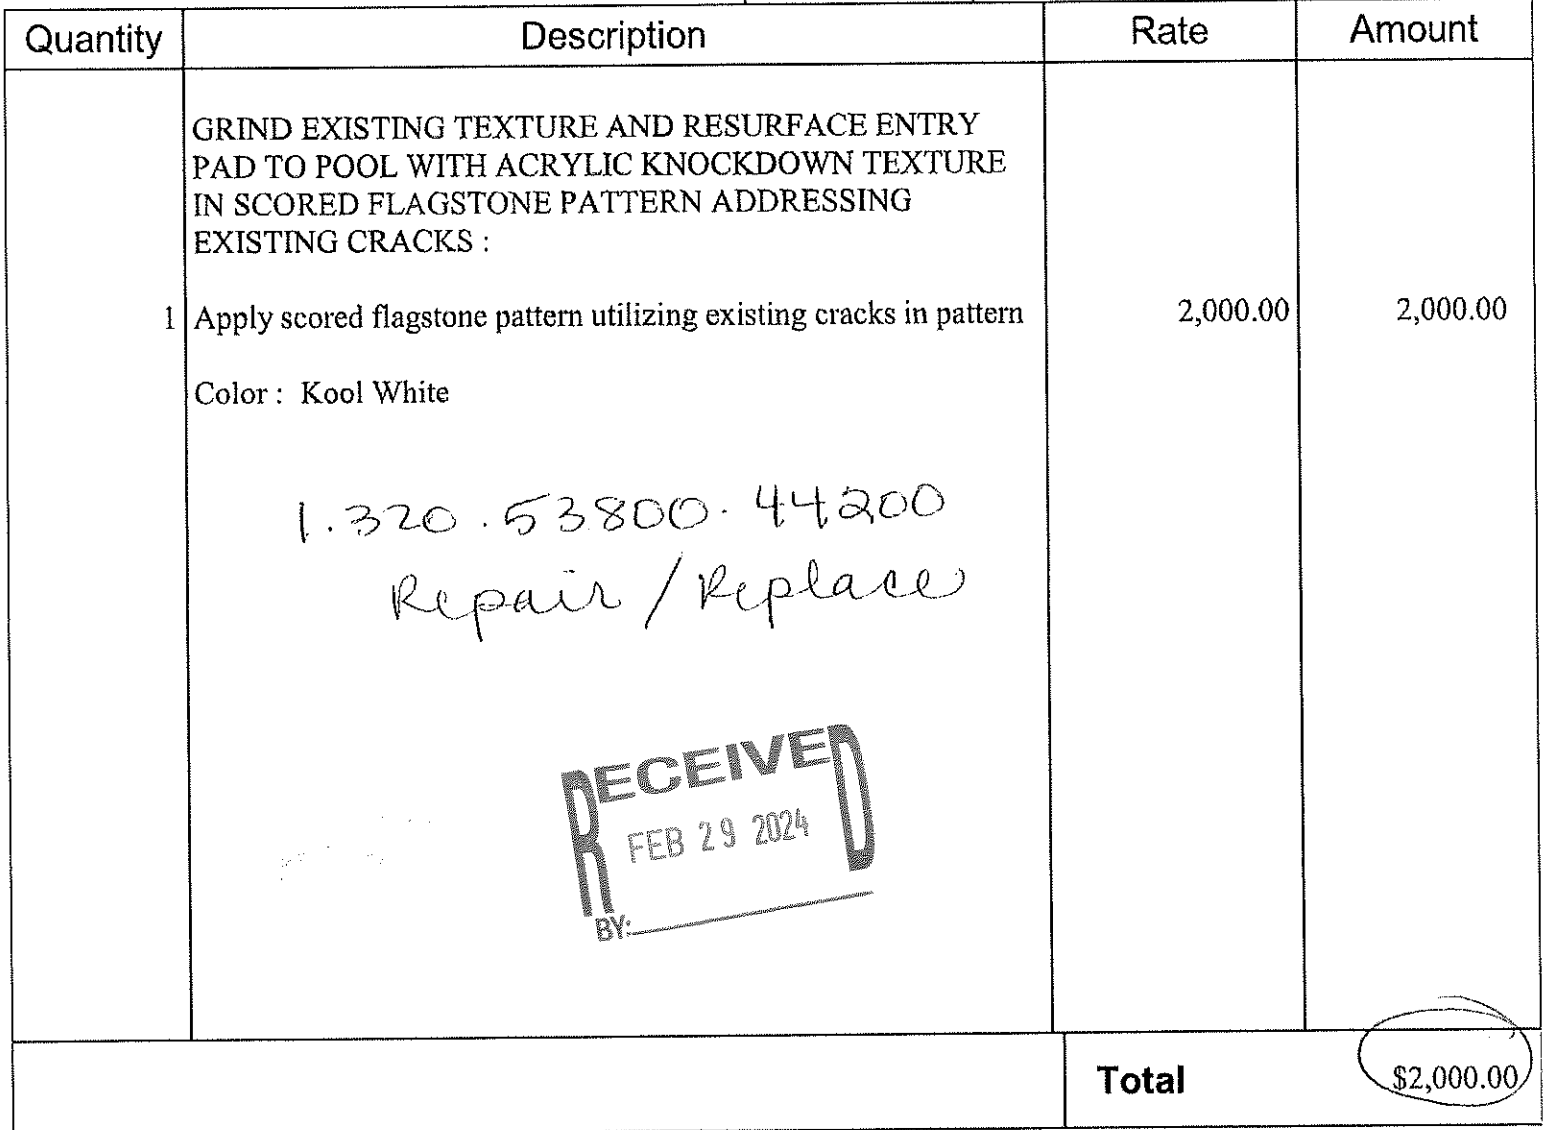 Quantity Description Rate Amount
GRIND EXISTING TEXTURE AND RESURFACE ENTRY
PAD TO POOL WITH ACRYLIC KNOCKDOWN TEXTURE
IN SCORED FLAGSTONE PATTERN ADDRESSING
EXISTING CRACKS :
1 Apply scored flagstone pattern utilizing existing cracks in pattern 2,000.00 2,000.00
Color : Kool White
1.320.53800.44200
Repair / Replace
RECEIVED
FEB 29 2024
BY:
Total $2,000.00